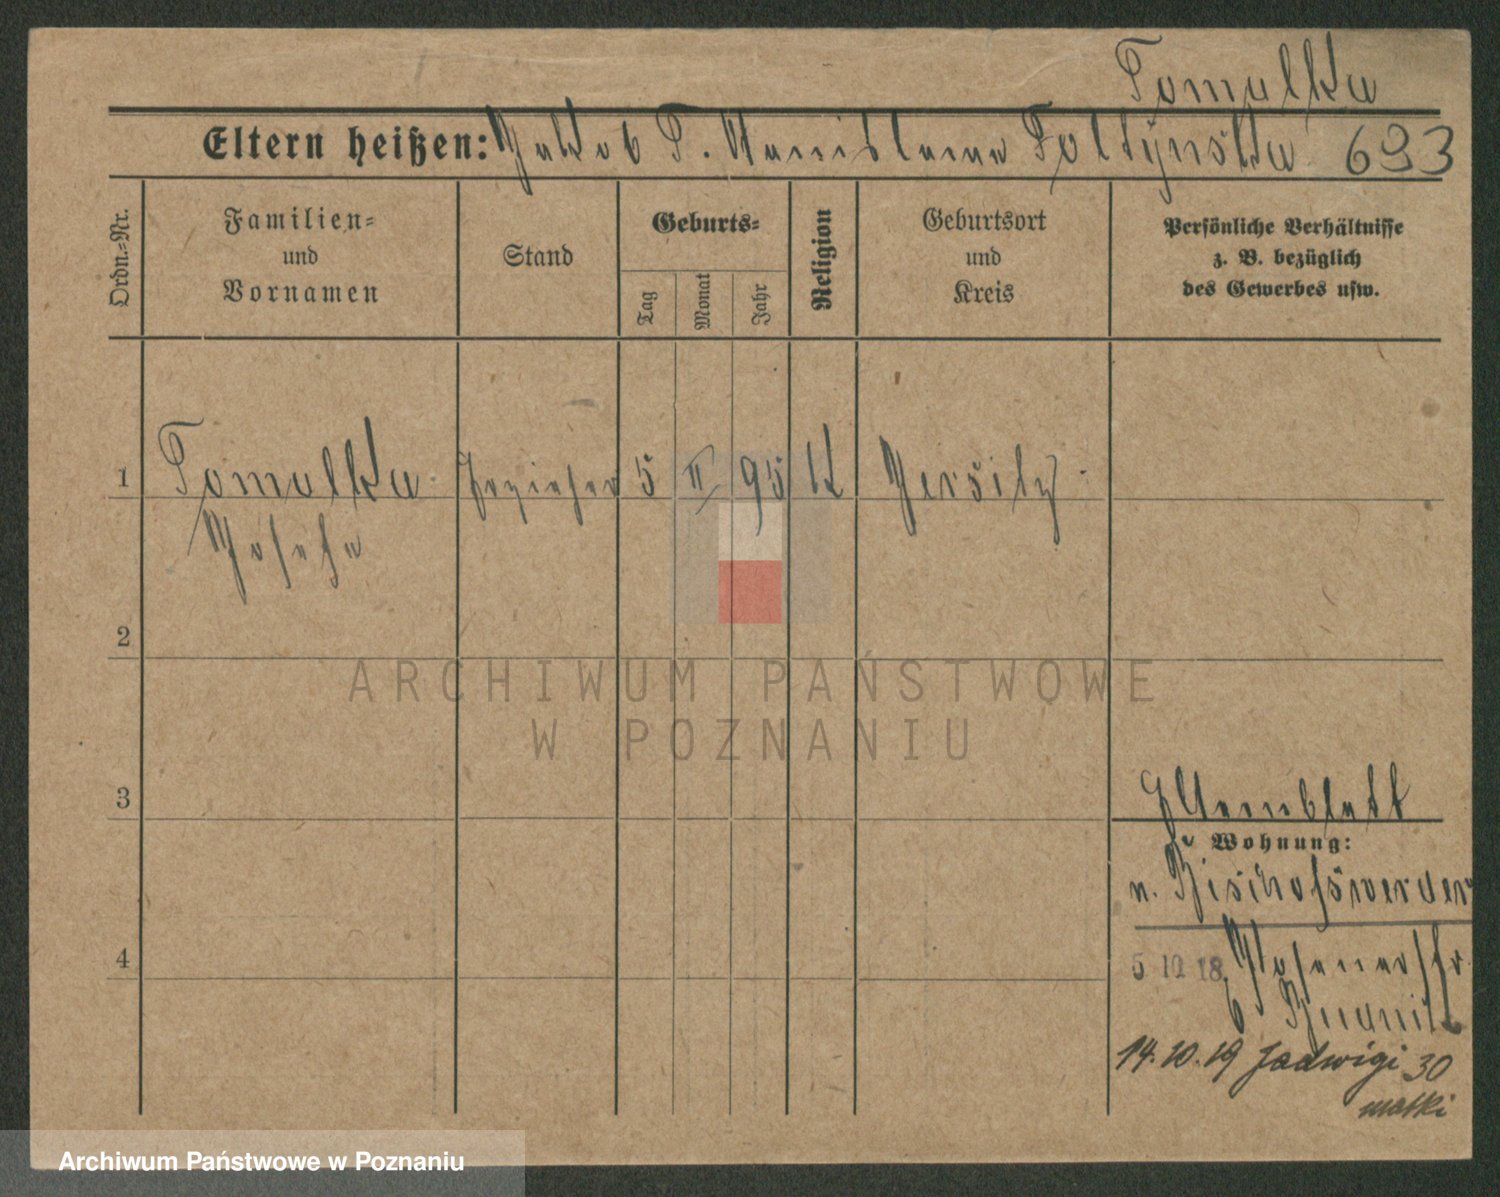 Tomalka
Eltern heißen: Jakob T. Stanislawa Foltynska 693
Ordn.-Nr.
Familien-
und
Vornamen
Stand
Geburts-
Tag
Monat
Jahr
Religion
Geburtsort
und
Kreis
Persönliche Verhältnisse
z. B. bezüglich
des Gewerbes usw.
1 Tomalka Erzieher 5 II 95 K Jersitz
Josefa
2
3
Stammblatt
Wohnung:
n. Bischofswerder
4
5 10 18. Posenerstr.
6
14.10.19 Jadwigi 30
matki
ARCHIWUM PAŃSTWOWE
W POZNANIU
Archiwum Państwowe w Poznaniu